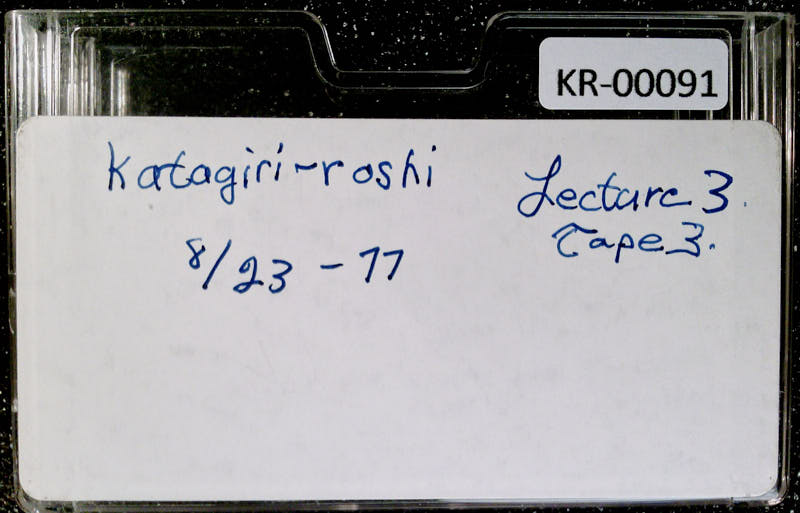 KR-00091
Katagiri-roshi
Lecture 3.
Tape 3.
8/23-77